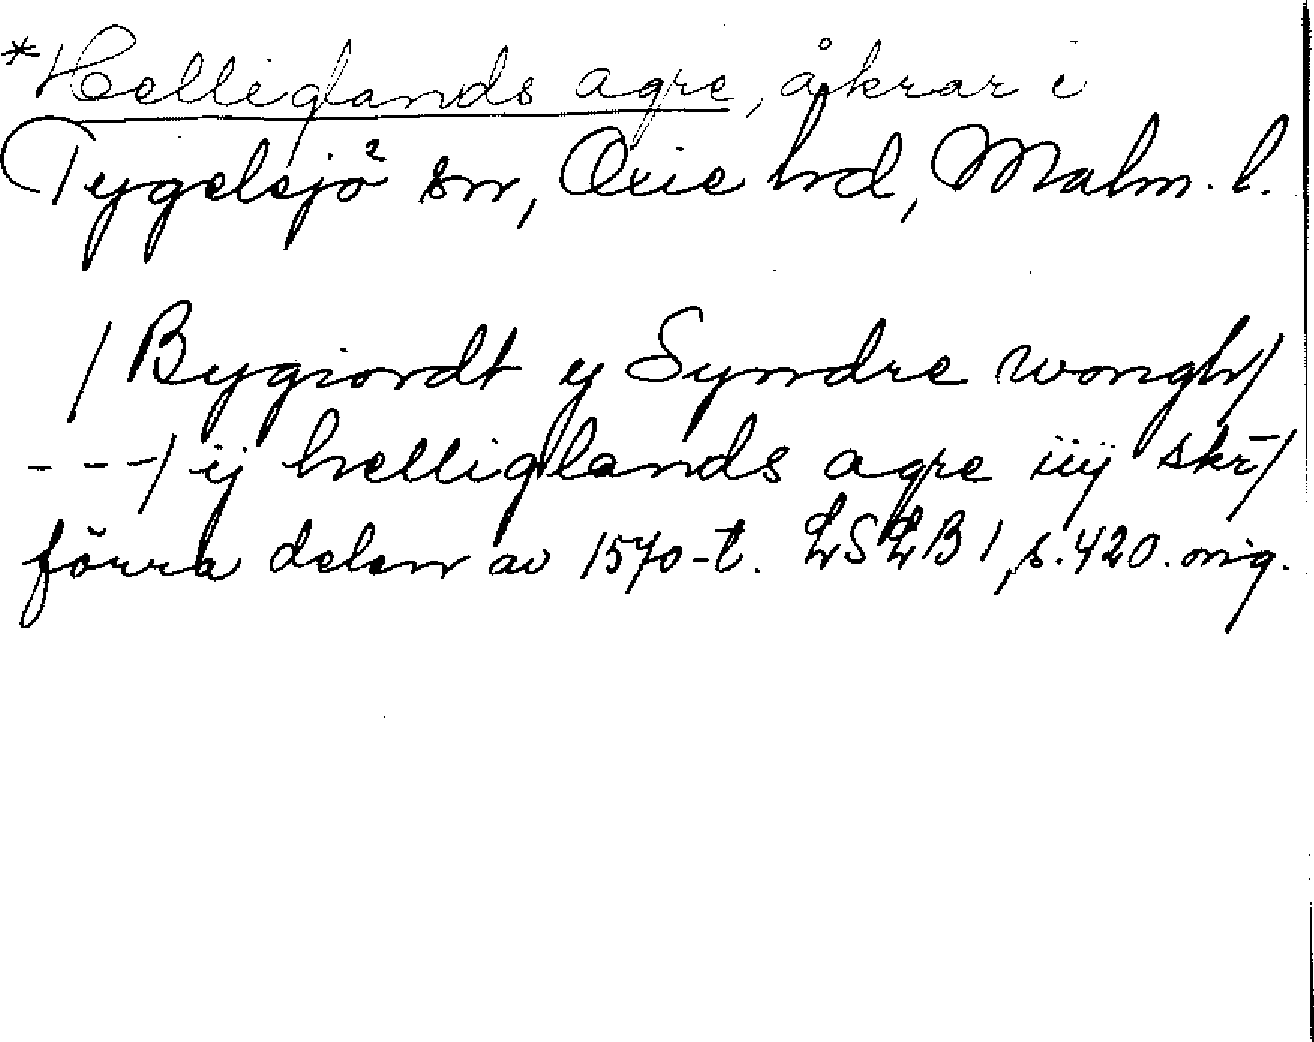 *Helliglands agre, åkrar i
Tygelsjö sn, Oxie hd, Malm. l.
/ Bygiordt y Syndre wongh/
- - -/ ij helliglands agre iiij skr̄/
förra delen av 1570-t. LSLB 1, s. 420. orig.